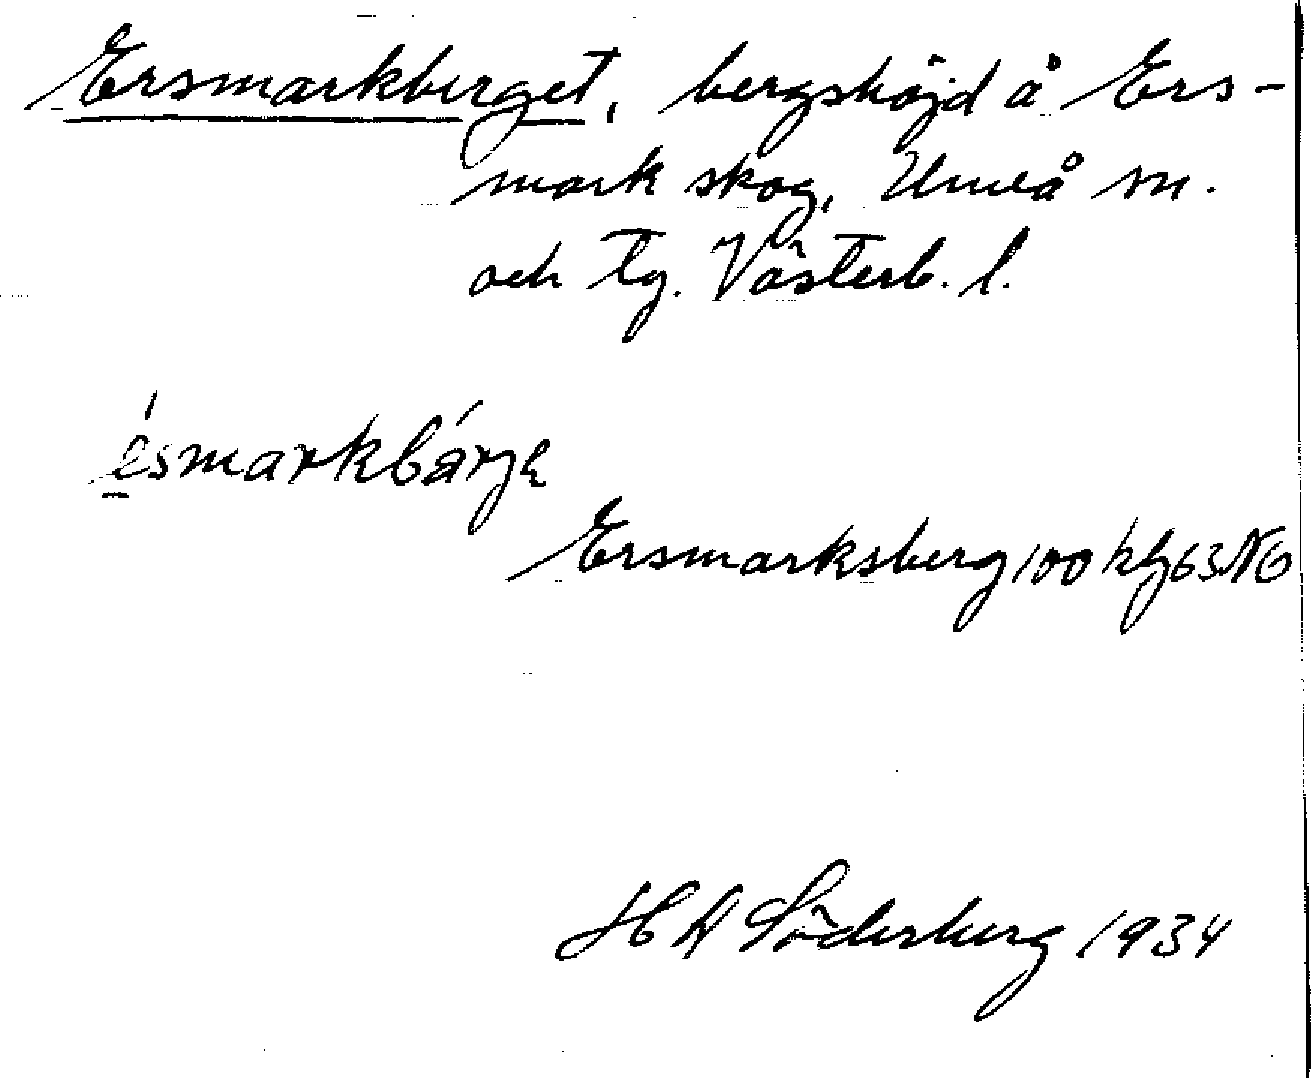 Ersmarkberget, bergshöjd å Ers-
mark skog, Umeå sn.
och tg. Västerb. l.
ésmarkbárje
Ersmarksberg 100 kbl 63 NO
H D Söderberg 1934